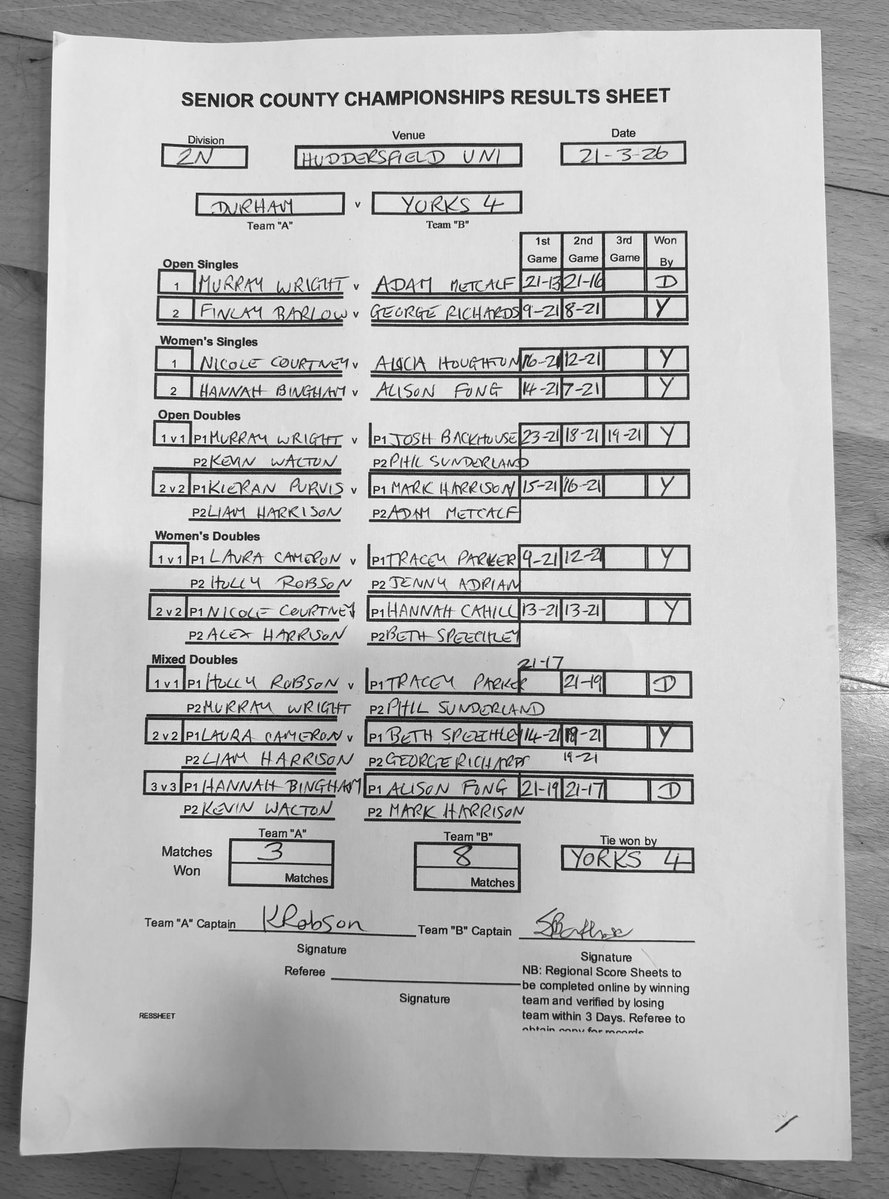 SENIOR COUNTY CHAMPIONSHIPS RESULTS SHEET
Division Venue Date
2N HUDDERSFIELD UNI 21-3-26
DURHAM v YORKS 4
Team "A" Team "B"
1st Game 2nd Game 3rd Game Won By
Open Singles
1 MURRAY WRIGHT v ADAM METCALF 21-13 21-16 D
2 FINLAY BARLOW v GEORGE RICHARDS 9-21 8-21 Y
Women's Singles
1 NICOLE COURTNEY v ALICIA HOUGHTON 16-21 12-21 Y
2 HANNAH BINGHAM v ALISON FONG 14-21 7-21 Y
Open Doubles
1 v 1 P1 MURRAY WRIGHT v P1 JOSH BACKHOUSE 23-21 18-21 19-21 Y
P2 KEVIN WALTON P2 PHIL SUNDERLAND
2 v 2 P1 KIERAN PURVIS v P1 MARK HARRISON 15-21 16-21 Y
P2 LIAM HARRISON P2 ADAM METCALF
Women's Doubles
1 v 1 P1 LAURA CAMERON v P1 TRACEY PARKER 9-21 12-21 Y
P2 HOLLY ROBSON P2 JENNY ADRIAN
2 v 2 P1 NICOLE COURTNEY P1 HANNAH CAHILL 13-21 13-21 Y
P2 ALEX HARRISON P2 BETH SPEECHLEY
Mixed Doubles 21-17
1 v 1 P1 HOLLY ROBSON v P1 TRACEY PARKER 21-19 D
P2 MURRAY WRIGHT P2 PHIL SUNDERLAND
2 v 2 P1 LAURA CAMERON v P1 BETH SPEECHLEY 14-21 19-21 Y
P2 LIAM HARRISON P2 GEORGE RICHARDS 19-21
3 v 3 P1 HANNAH BINGHAM P1 ALISON FONG 21-19 21-17 D
P2 KEVIN WALTON P2 MARK HARRISON
Team "A" Team "B" Tie won by
Matches Won 3 8 YORKS 4
Matches Matches
Team "A" Captain K Robson Team "B" Captain
Signature Signature
Referee
Signature
NB: Regional Score Sheets to
be completed online by winning
team and verified by losing
team within 3 Days. Referee to
obtain copy for records
RESSHEET